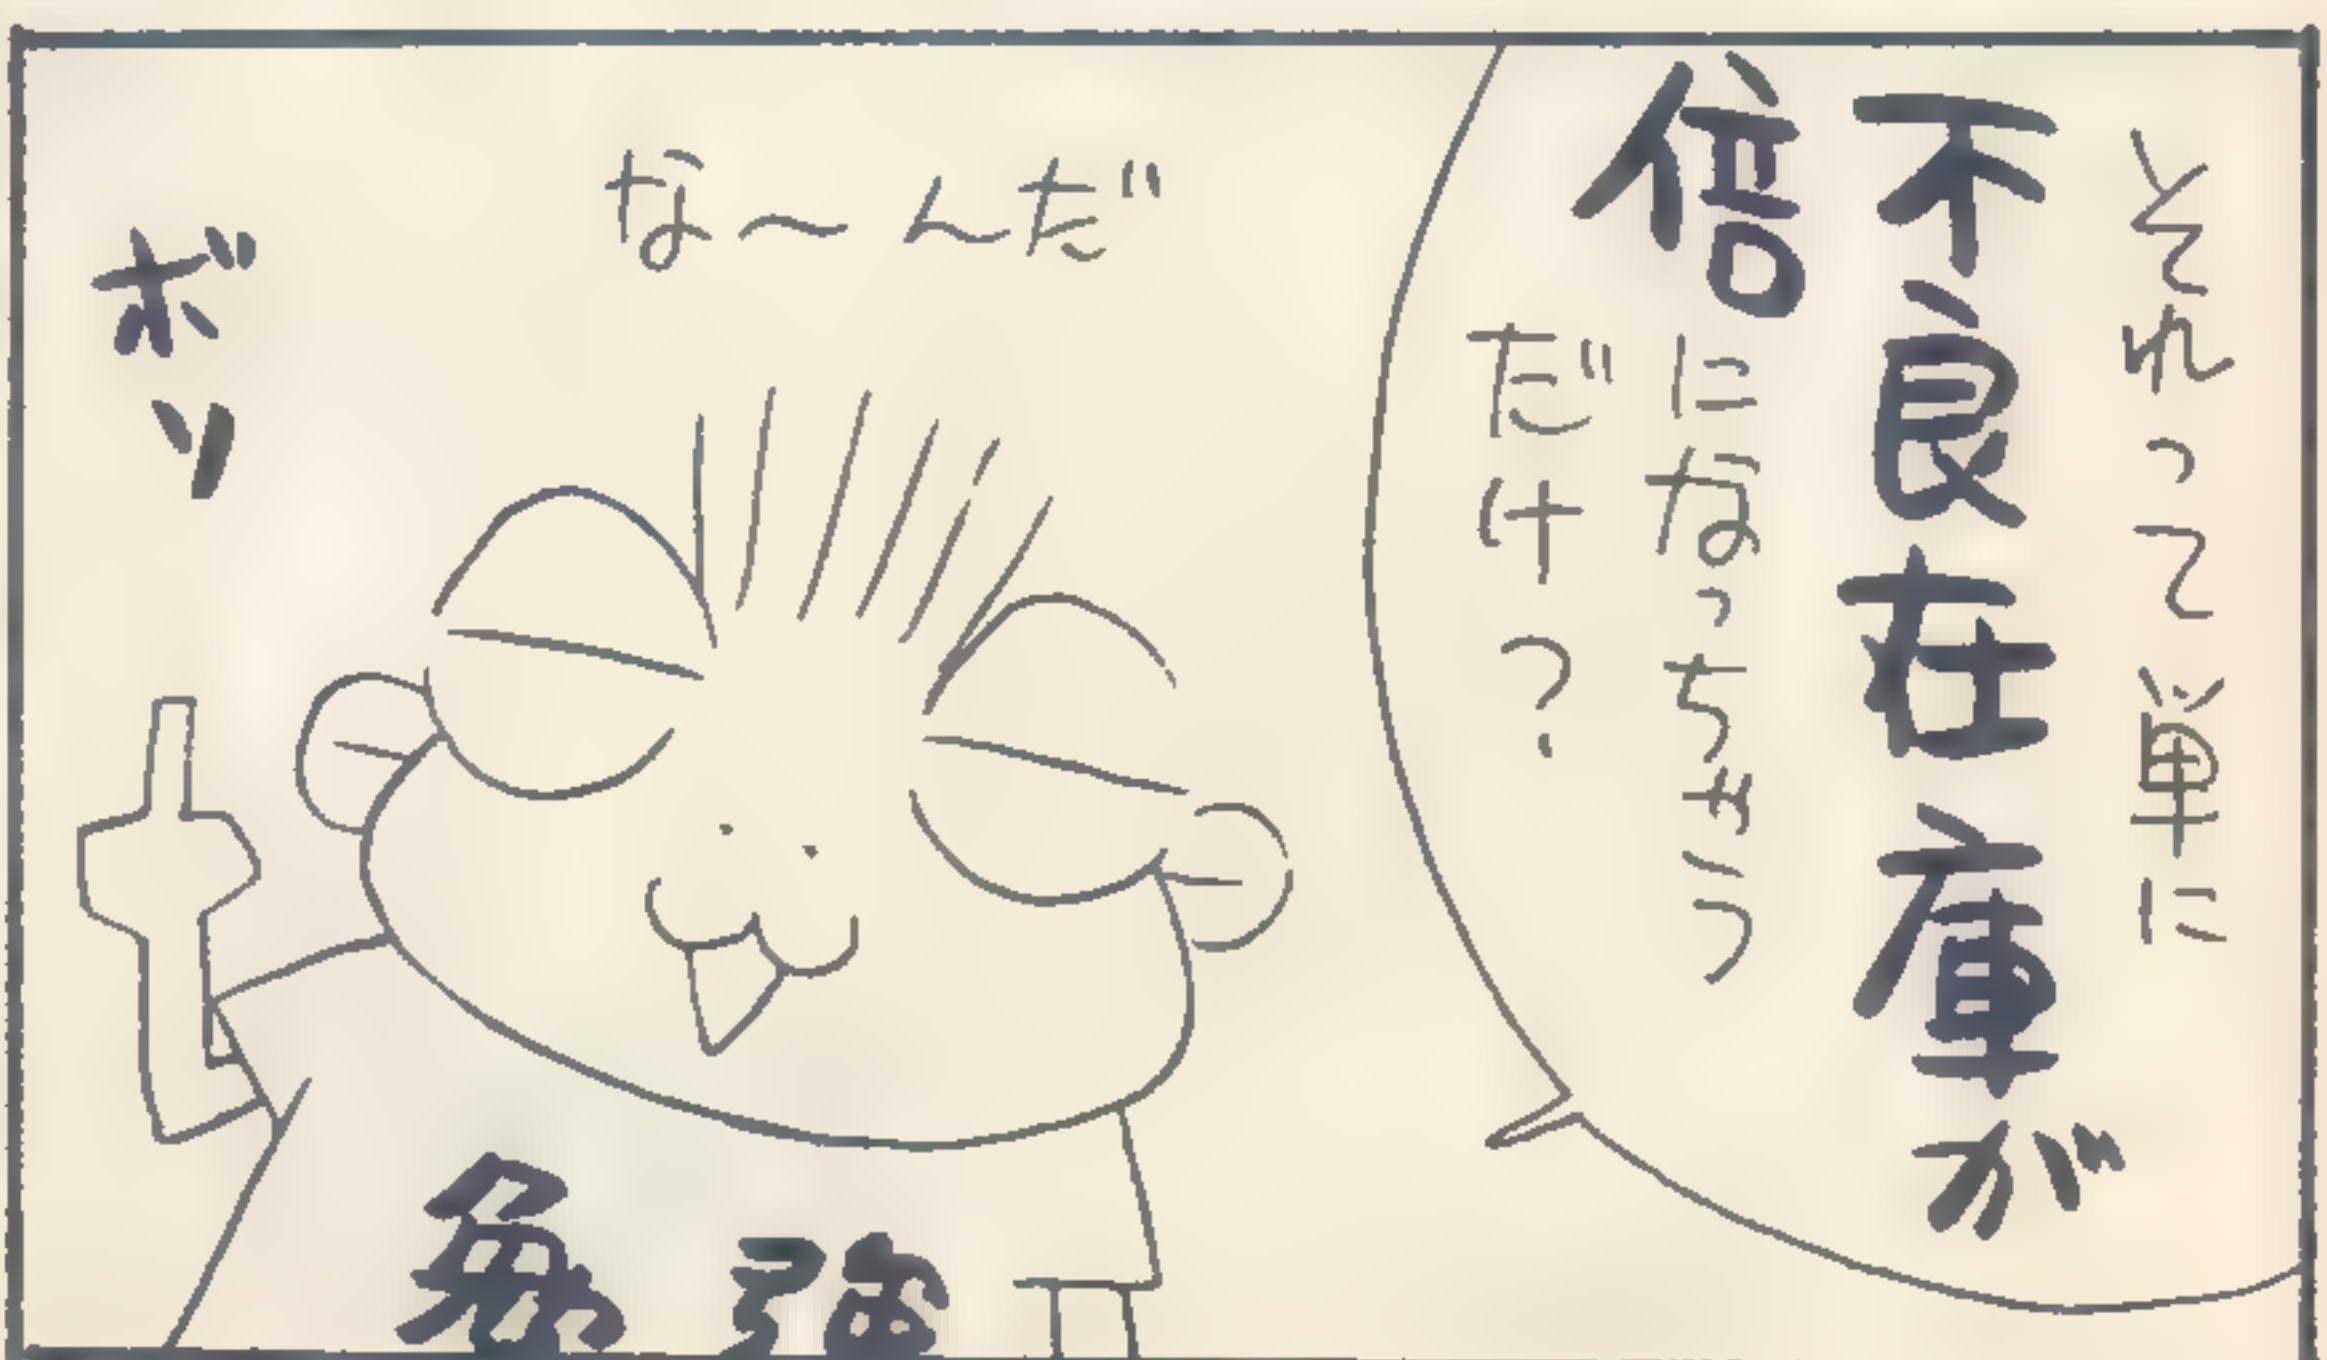 それって単に
不良在庫が
倍になっちゃう
だけ?
な〜んだ
ボソ
勉強